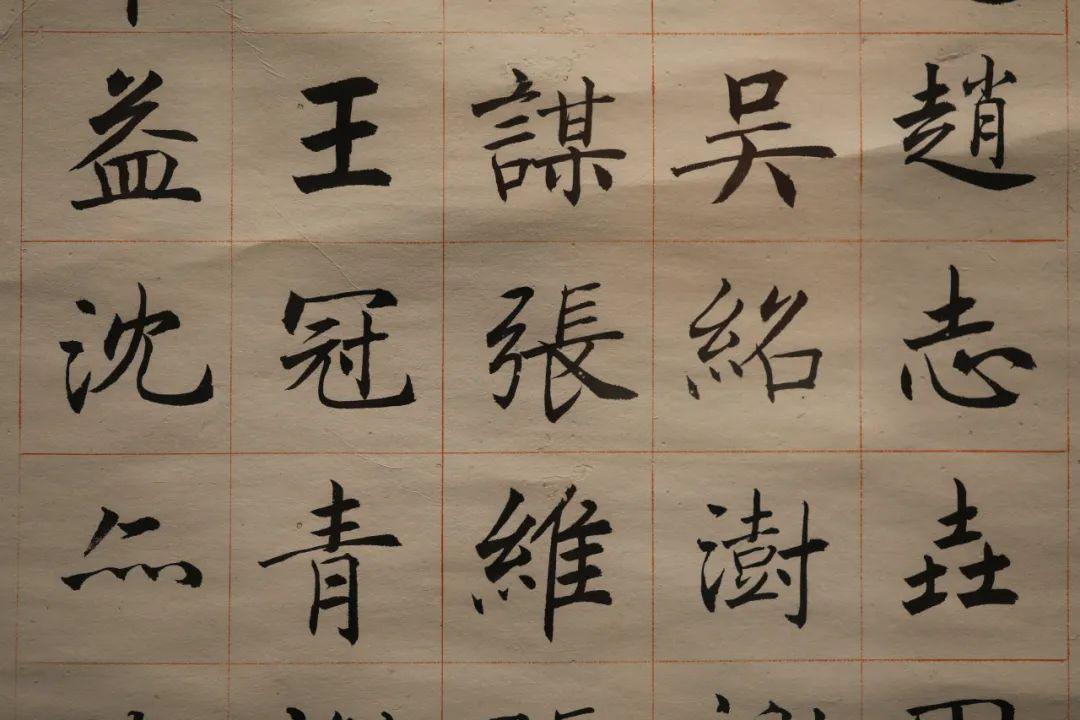 趙志垚
吳紹澍
謀張維
王冠青
益沈